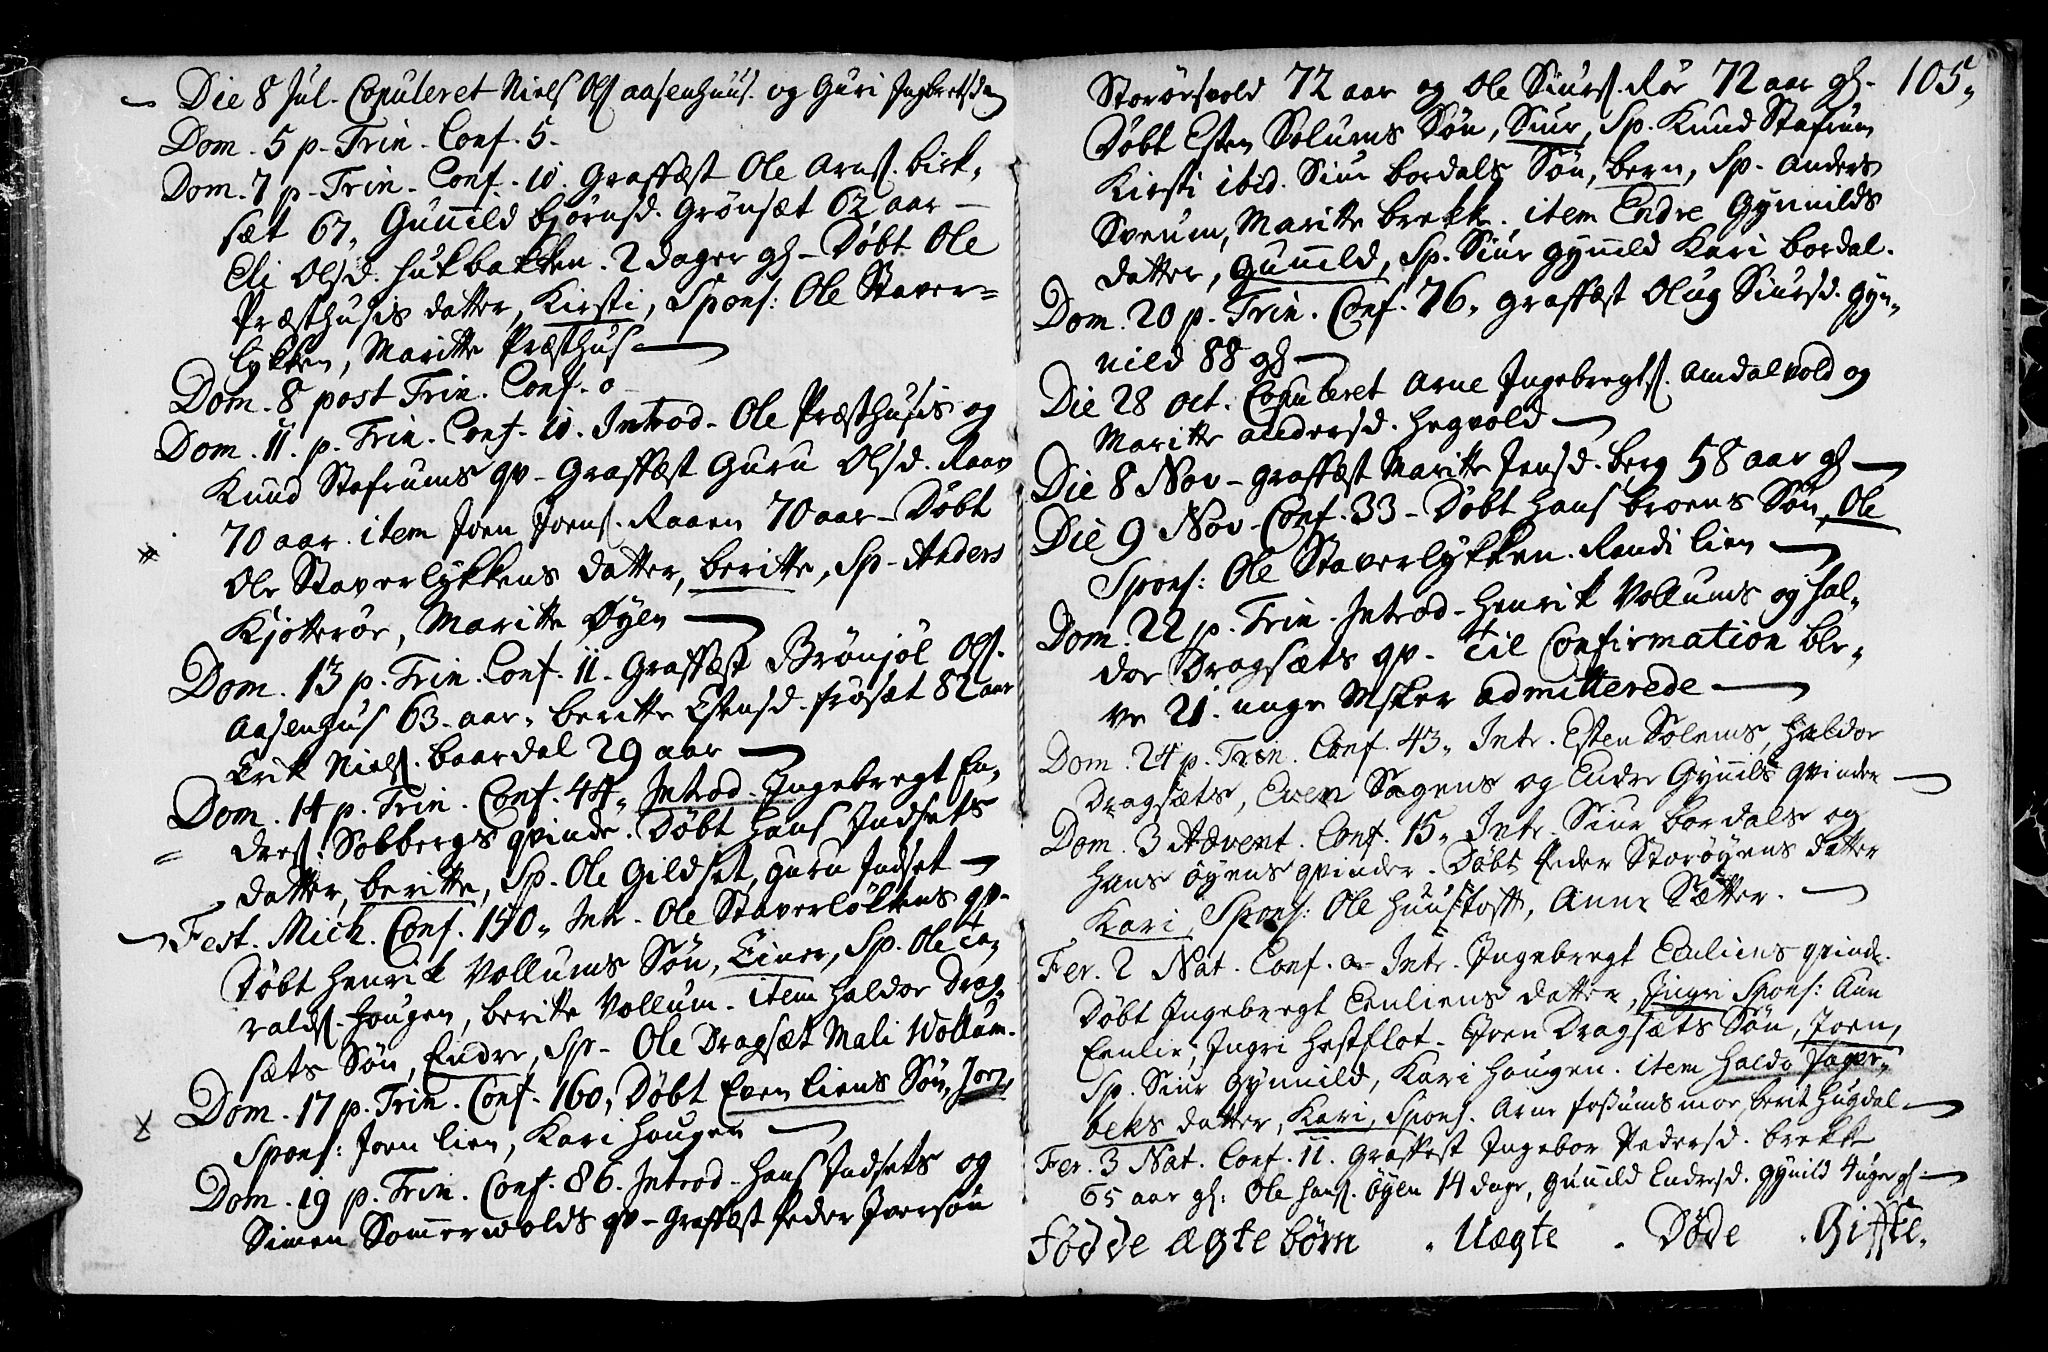 Die 8 Jul. Copuleret Niels Ols. aasenhuus. og Guri Ingebretsd.
Dom. 5 p. Trin. Conf. 5.
Dom. 7 p. Trin. Conf. 10. Graffæst Ole Arns. birk,
sæt 67, Gunnild biørnsd. Grönsæt 62 aar —
Eli Olsd. hukbakken. 2 dager gl. Döbt Ole
Præsthusis datter, Kirsti, Spons: Ole Staver=
lykken, Maritte Præsthus —
Dom. 8 post Trin. Conf. 0
Dom. 11. p. Trin. Conf. 10. Introd. Ole Præsthusis og
Knud Stafrums qv. Graffæst Guru Olsd. Raaen
70 aar. item Joen Joens. Raaen 70 aar. Döbt
Ole Staverlykkens datter, beritte, Sp. Anders
Kjøtterös, Maritte Øyen —
Dom. 13 p. Trin. Conf. 11. Graffæst Brönjöl Ols.
Aasenhus 63 aar. beritte Estensd. frösæt 82 aar
Erik Niels. baardal 29 aar —
Dom. 14 p. Trin. Conf. 44, Introd. Ingebregt En,
dres. Solbergs qvinde. Döbt Hans Indsets
datter, beritte, Sp. Ole Gildset, guru Indset —
Fest. Mich. Conf. 150, Intr. Ole Staverlökkens qv.
Döbt Henrik Vollums Sön, Einer, Sp. Ole Ta,
ralds. Haugen, beritte Vollum. item Haldor Drag
sæts Sön, Endre, Sp. Ole Dragsæt Mali Wollum.
Dom. 17 p. Trin. Conf. 160, Döbt Even Liens Sön, Joen,
Spons: Joen lien, Kari Haugen —
Dom. 19 p. Trin. Conf. 86. Introd. Hans Indsets og
Simen Sommervolds qv. Graffæst Peder Iversön
105,
Storörsvold 72 aar og Ole Siurs. Rör 72 aar gl.
Döbt Esten Solums Sön, Siur, Sp. Knud Stafrum
Kirsti ibid. Siur bordals Sön, bern, Sp. Anders
Sveum, Maritte brekk. item Endre Gynnilds
datter, Gunnild, Sp. Siur gynild Kari bordal.
Dom. 20 p. Trin. Conf. 76, graffæst Olug Siursd. gyn,
nild 88 gl —
Die 28 oct. Copuleret Arne Ingebregts. Amdalvold og
Maritte Andersd. Hegvold —
Die 8 Nov. graffæst Maritte Jensd. berg 58 aar gl —
Die 9 Nov. Conf. 33. Döbt Hans broens Sön, Ole
Spons: Ole Staverlykken. Randi lien —
Dom. 22 p. Trin. Introd. Henrik Vollums og Hal,
dor Dragsæts qv. Til Confirmation ble,
ve 21. unge Msker admitterede —
Dom. 24 p. Trin. Conf. 43, Intr. Esten Solems, Haldor
Dragsæts, Even Sagens og Endre Gynnils qvinder —
Dom. 3 Advent. Conf. 15, Intr. Siur bordals og
Hans öyens qvinder. Döbt Peder Storöyens datter
Kari, Spons: Ole Huustoft, Anne Sætter. —
Fer. 2 Nat. Conf. 0. Intr. Ingebregt Eenliens qvinde.
Döbt Ingebregt Eenliens datter, Ingri Spons: Ann
Eenlie, Ingri Hestflot. Joen Dragsæts Sön, Joen,
Sp. Siur Gynnild, Kari Haugen. item Haldo Jager,
beks datter, Kari, Spons. Arne fossums mor, berit Hugdal —
Fer. 3 Nat. Conf. 11. Graffæst Ingebor Pedersd. brekk
65 aar gl: Ole Hans. öyen 14 dage, Gunnild Endresd. gynild 4 uger gl —
Födde ægte börn . Uægte . Döde . Gifte.